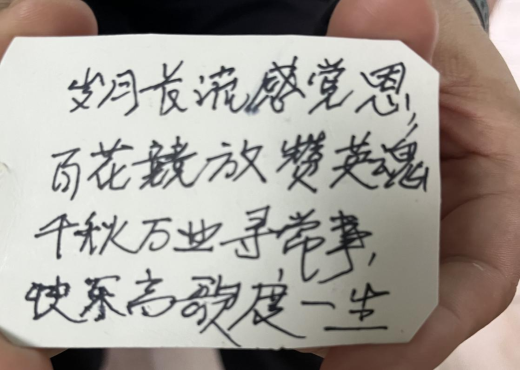 岁月长流感党恩,
百花競放赞英魂
千秋万业寻常事,
快乐高歌度一生